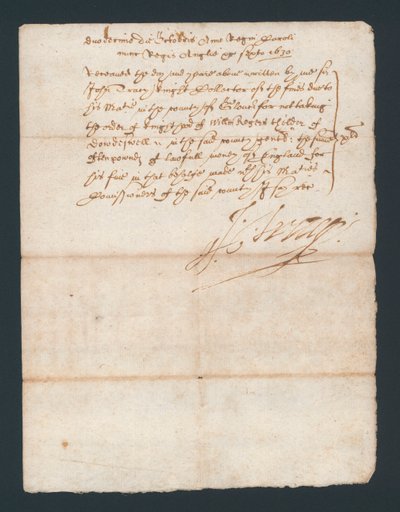 duodecimo die Octobris Anno Regni Caroli
nunc Regis Anglie &c Sexto 1630
Receaved the day and yeare above written by me Sr
John Tracy Knight Collector of the fines due to
his Matie in the County of Glouc for not taking
the order of Knighthood of Willm Rogers th elder of
Dowdeswell in the said County gent the some xli
of ten pownds of lawfull money of England for
his fine in that behalfe made wth his Maties
Comissioners of the said County I say rec
Jo: Tracy